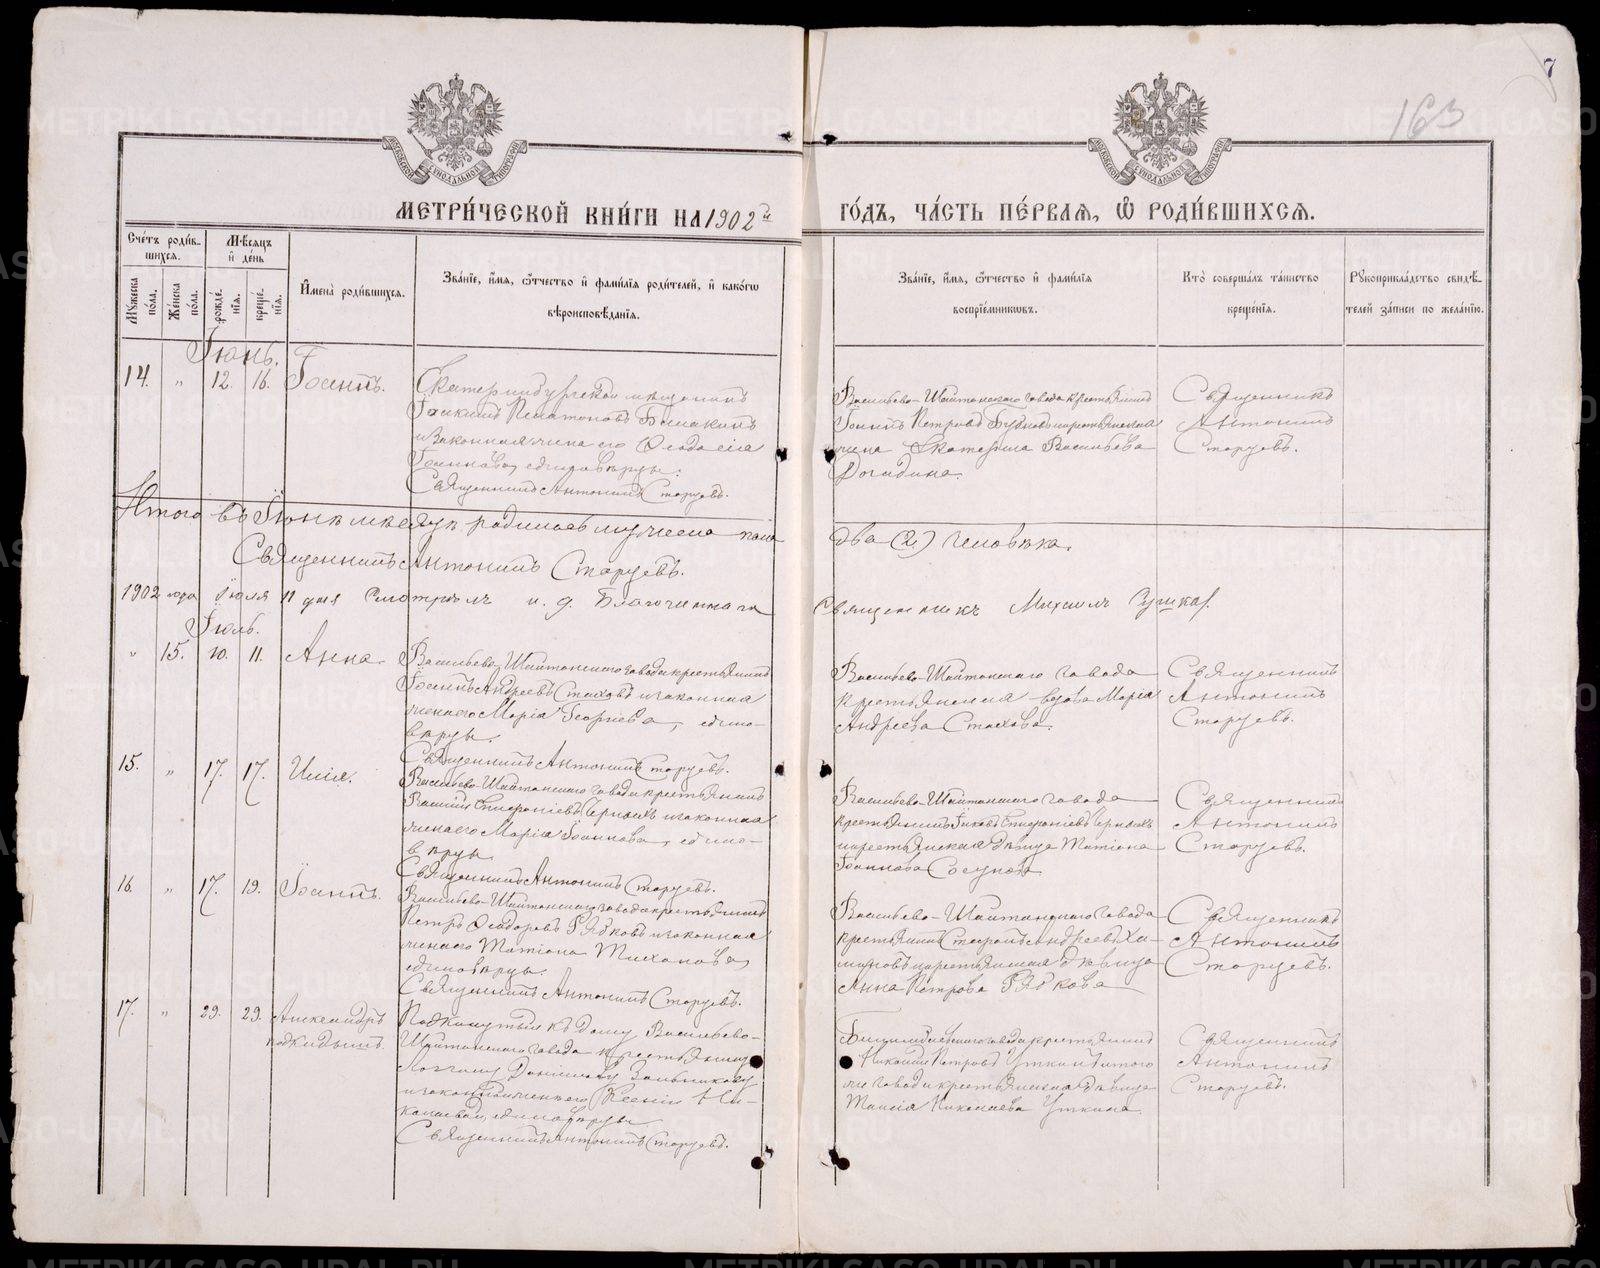 7
163
МЕТРИ́ЧЕСКОЙ КНИ́ГИ НА 1902 й
ГО́ДЪ, ЧА́СТЬ ПЕ́РВАѦ, Ѿ РОДИ́ВШИХСѦ.
Сче́тъ роди́в-
шихсѧ.
Мѣ́сѧцъ
и҆ де́нь
Мꙋ́жеска
по́ла.
Же́нска
по́ла.
рожде́-
нїѧ.
креще́-
нїѧ.
И҆мена̀ роди́вшихсѧ.
Зва́нїе, и҆́мѧ, ѻ҆́тчество и҆ фами́лїѧ роди́телей, и҆ како́гѡ
вѣроисповѣ́данїѧ.
Зва́нїе, и҆́мѧ, ѻ҆́тчество и҆ фами́лїѧ
воспрїе́мникѡвъ.
Кто̀ соверша́лъ та́инство
креще́нїѧ.
Рꙋкоприкла́дство свидѣ́-
телей за́писи по жела́нїю.
Іюнь.
14. " 12. 16. Іоаннъ.
Екатеринбургскій мѣщанинъ
Іоакимъ Платоновъ
и законная жена его Ѳеодосія
Іоаннова, единовѣрцы.
Священникъ Антонинъ Старцевъ.
Васильево-Шайтанскаго завода крестьянинъ
Іоаннъ Петровъ
Екатерина Васильева
Священникъ
Антонинъ
Старцевъ.
Итого въ Іюнѣ мѣсяцѣ родилось мужеска пола
два (2) человѣка.
Священникъ Антонинъ Старцевъ.
1902 года Іюля 11 дня Смотрѣлъ и. д. Благочиннаго
Священникъ Михаилъ
Іюль.
" 15. 10. 11. Анна.
Васильево-Шайтанскаго завода крестьянинъ
Іоаннъ Андреевъ Стаховъ и законная
жена его Марія Георгіева, едино-
вѣрцы.
Священникъ Антонинъ Старцевъ.
Васильево-Шайтанскаго завода
крестьянская вдова Марія
Андреева Стахова.
Священникъ
Антонинъ
Старцевъ.
15. " 17. 17. Илія.
Васильево-Шайтанскаго завода крестьянинъ
Василій Епифаніевъ Черныхъ и законная
жена его Марія Іоаннова, едино-
вѣрцы
Священникъ Антонинъ Старцевъ.
Васильево-Шайтанскаго завода
крестьянинъ Іаковъ Епифаніевъ Черныхъ
и крестьянская дѣвица Татіана
Іоаннова
Священникъ
Антонинъ
Старцевъ.
16. " 17. 19. Іоаннъ.
Васильево-Шайтанскаго завода крестьянинъ
Петръ Ѳеодоровъ Рябковъ и законная
жена его Татіана Тихонова,
единовѣрцы.
Священникъ Антонинъ Старцевъ.
Васильево-Шайтанскаго завода
крестьянинъ Андреевъ
и крестьянская дѣвица
Анна Петрова Рябкова
Священникъ
Антонинъ
Старцевъ.
17. " 29. 29. Александръ
подкидышъ.
Подкинутый къ дому Васильево-
Шайтанскаго завода крестьянину
Даніилову
и законной жены его Ксеніи Ни-
колаевой, единовѣрцы
Священникъ Антонинъ Старцевъ.
Билимбаевскаго завода крестьянинъ
Николай Петровъ Уткинъ и того
же завода крестьянская дѣвица
Таисія Николаева Уткина.
Священникъ
Антонинъ
Старцевъ.
METRIKI.GASO-URAL.RU